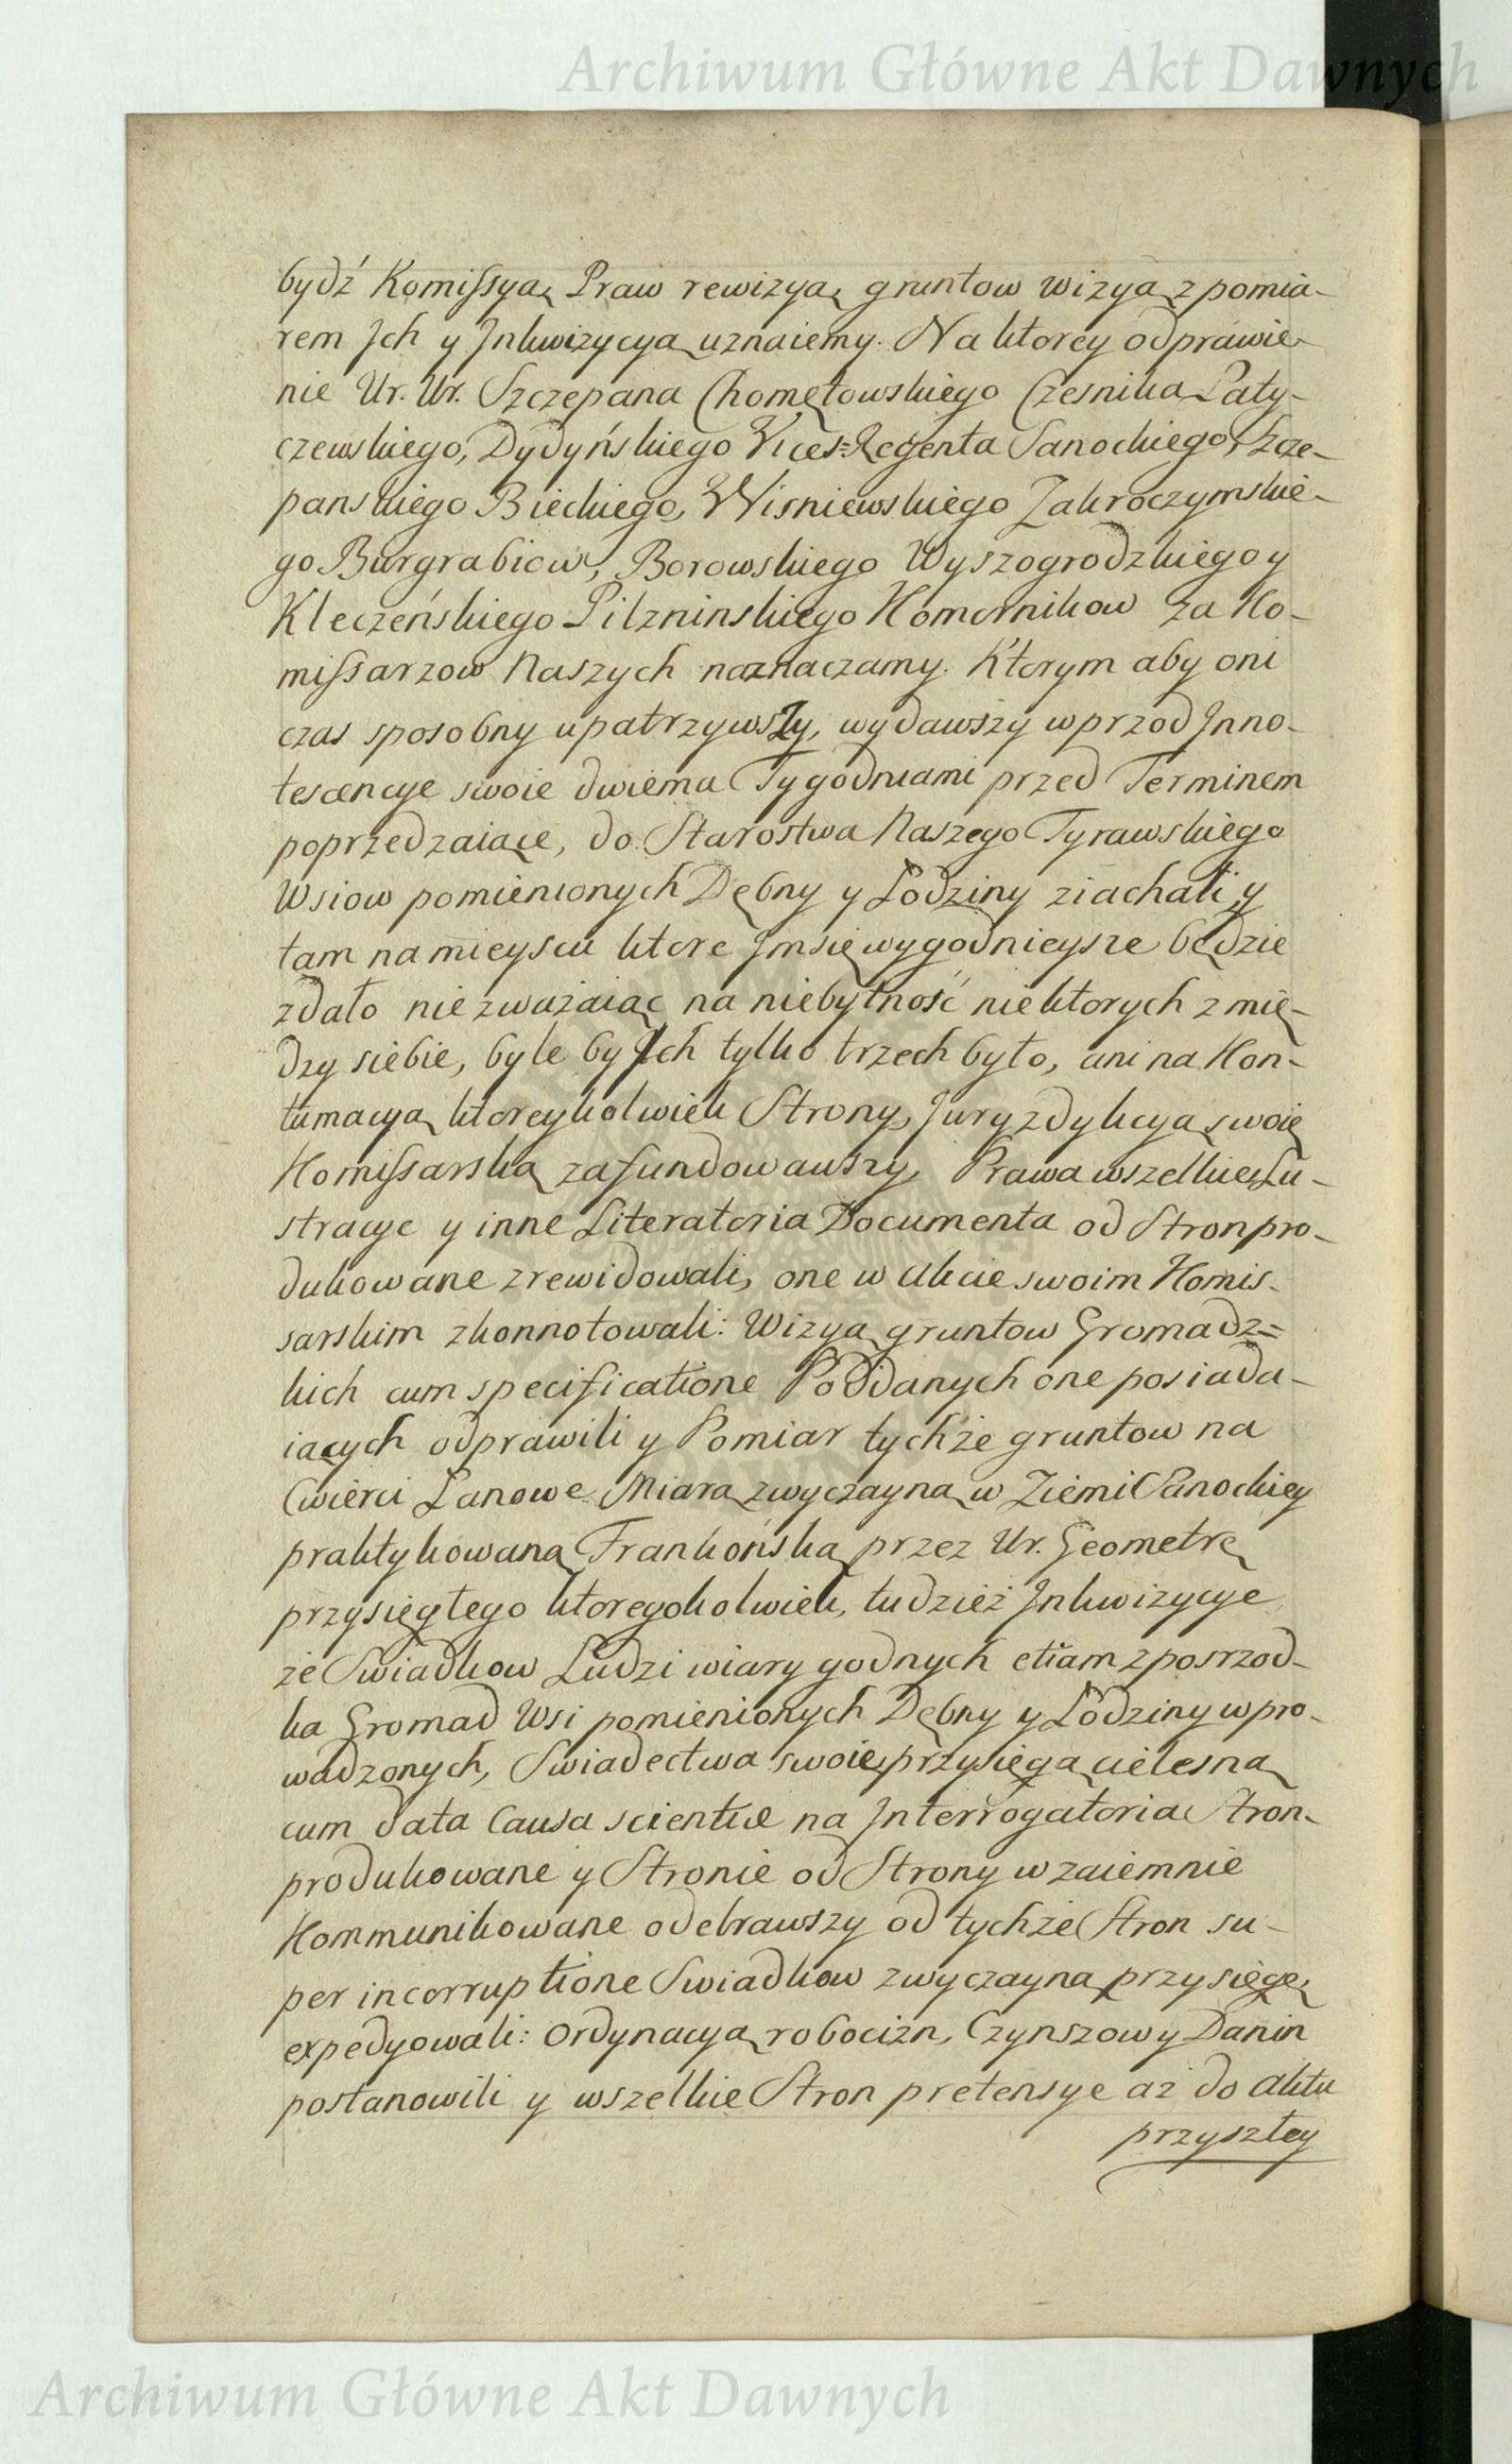 Archiwum Główne Akt Dawnych
bydź Komissyą, Praw rewizyą, gruntow wizyą z pomia-
rem Ich y Inkwizycyą uznaiemy. Na ktorey odprawie-
nie Ur. Ur. Szczepana Chomętowskiego Czesnika Laty-
czewskiego, Dydyńskiego Vices=Regenta Sanockiego, Szcze-
panskiego Bieckiego, Wisniewskiego Zakroczymskie-
go Burgrabiow, Borowskiego Wyszogrodzkiego y
Kleczeńskiego Pilzninskiego Komornikow za Ko-
missarzow Naszych naznaczamy. Ktorym aby oni
czas sposobny upatrzywszy, wydawszy wprzod Inno-
tescencye swoie dwiema Tygodniami przed Terminem
poprzedzaiące, do Starostwa Naszego Tyrawskiego
Wsiow pomienionych Dębny y Łodziny ziachali, y
tam na mieyscu ktore Im się wygodnieysze będzie
zdało nie zważaiąc na niebytność niektorych z mię-
dzy siebie, byle by Ich tylko trzech było, ani na Kon-
tumacyą ktoreykolwiek Strony, Juryzdykcyą swoię
Komissarską zafundowawszy, Prawa wszelkie, Lu-
stracye y inne Literatoria Documenta od Stron pro-
dukowane zrewidowali, one w Akcie swoim Komis-
sarskim zkonnotowali: Wizyą gruntow Gromadz=
kich cum specificatione Poddanych one posiada-
iących odprawili y Pomiar tychże gruntow na
Cwierci Łanowe Miarą zwyczayną w Ziemi Sanockiey
praktykowaną Frankońską przez Ur. Geometrę
przysięgłego ktoregokolwiek, tudzież Inkwizycye
ze Swiadkow Ludzi wiary godnych etiam z posrzod-
ka Gromad Wsi pomienionych Dębny y Łodziny wpro-
wadzonych, Swiadectwa swoie przysięgą cielesną
cum data Causa scientiæ na Interrogatoria Stron
produkowane y Stronie od Strony wzaiemnie
Kommunikowane odebrawszy od tychże Stron su-
per incorruptione Swiadkow zwyczayną przysięgę,
expedyowali: Ordynacyą robocizn, Czynszow y Danin
postanowili y wszelkie Stron pretensye aż do Aktu
przyszłey
Archiwum Główne Akt Dawnych